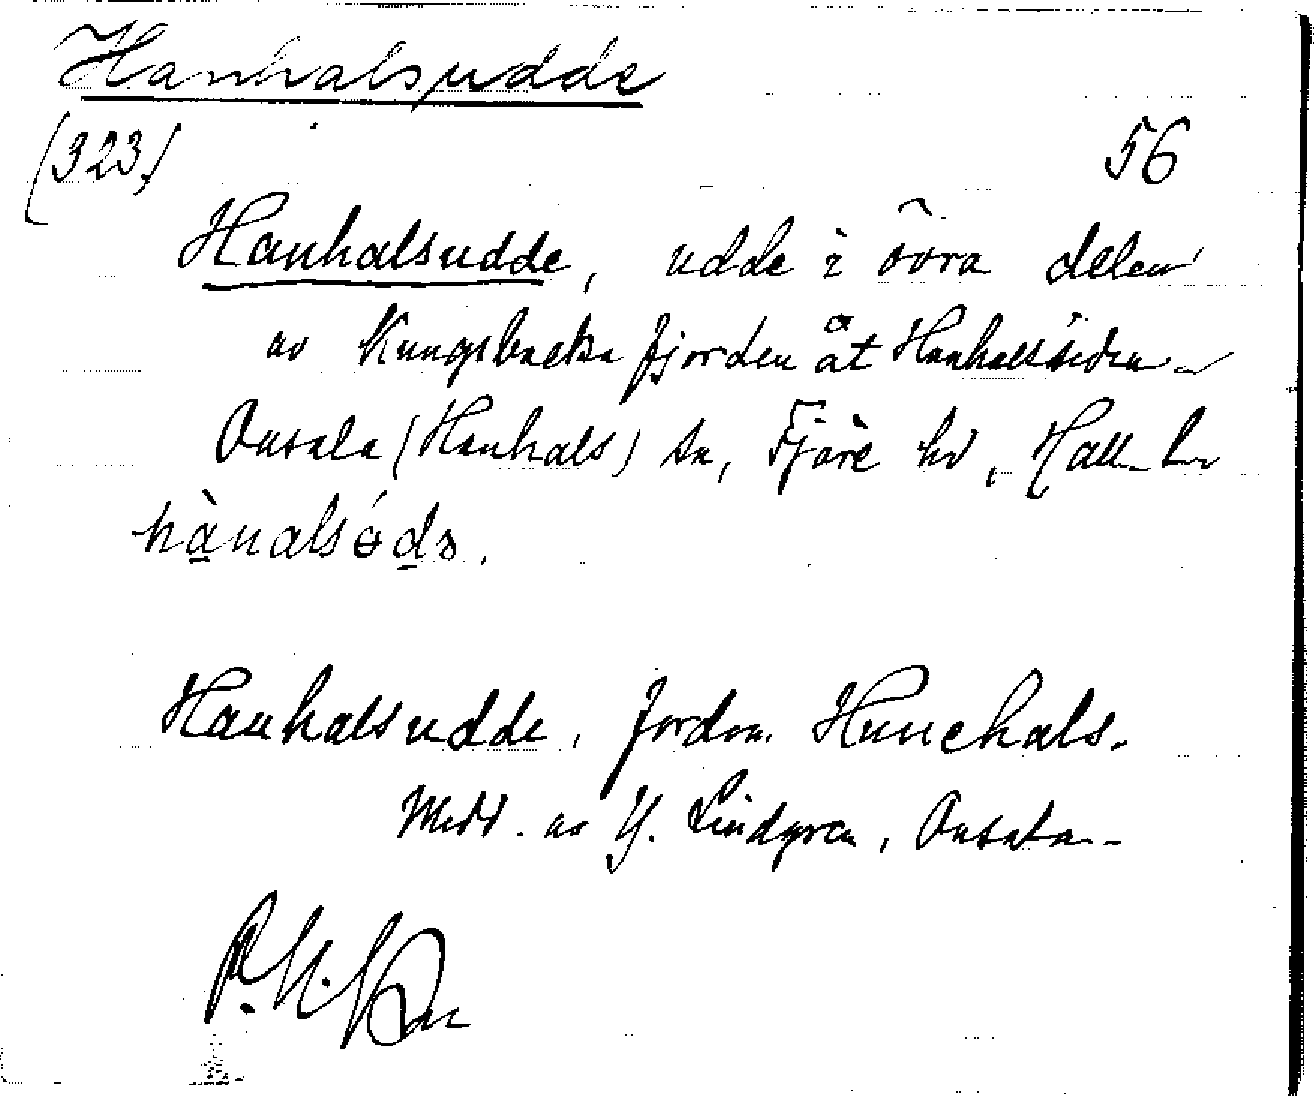 Hanhalsudde
(323) 56
Hanhalsudde, udde i övra delen
av Kungsbacka fjorden åt Hanhalssidan
Onsala (Hanhals) sn, Fjäre hd, Hall. l.
hànalsódə.
Hanhalsudde, fordom Hunehals.
Medd. av Y. Lindgren, Onsala.